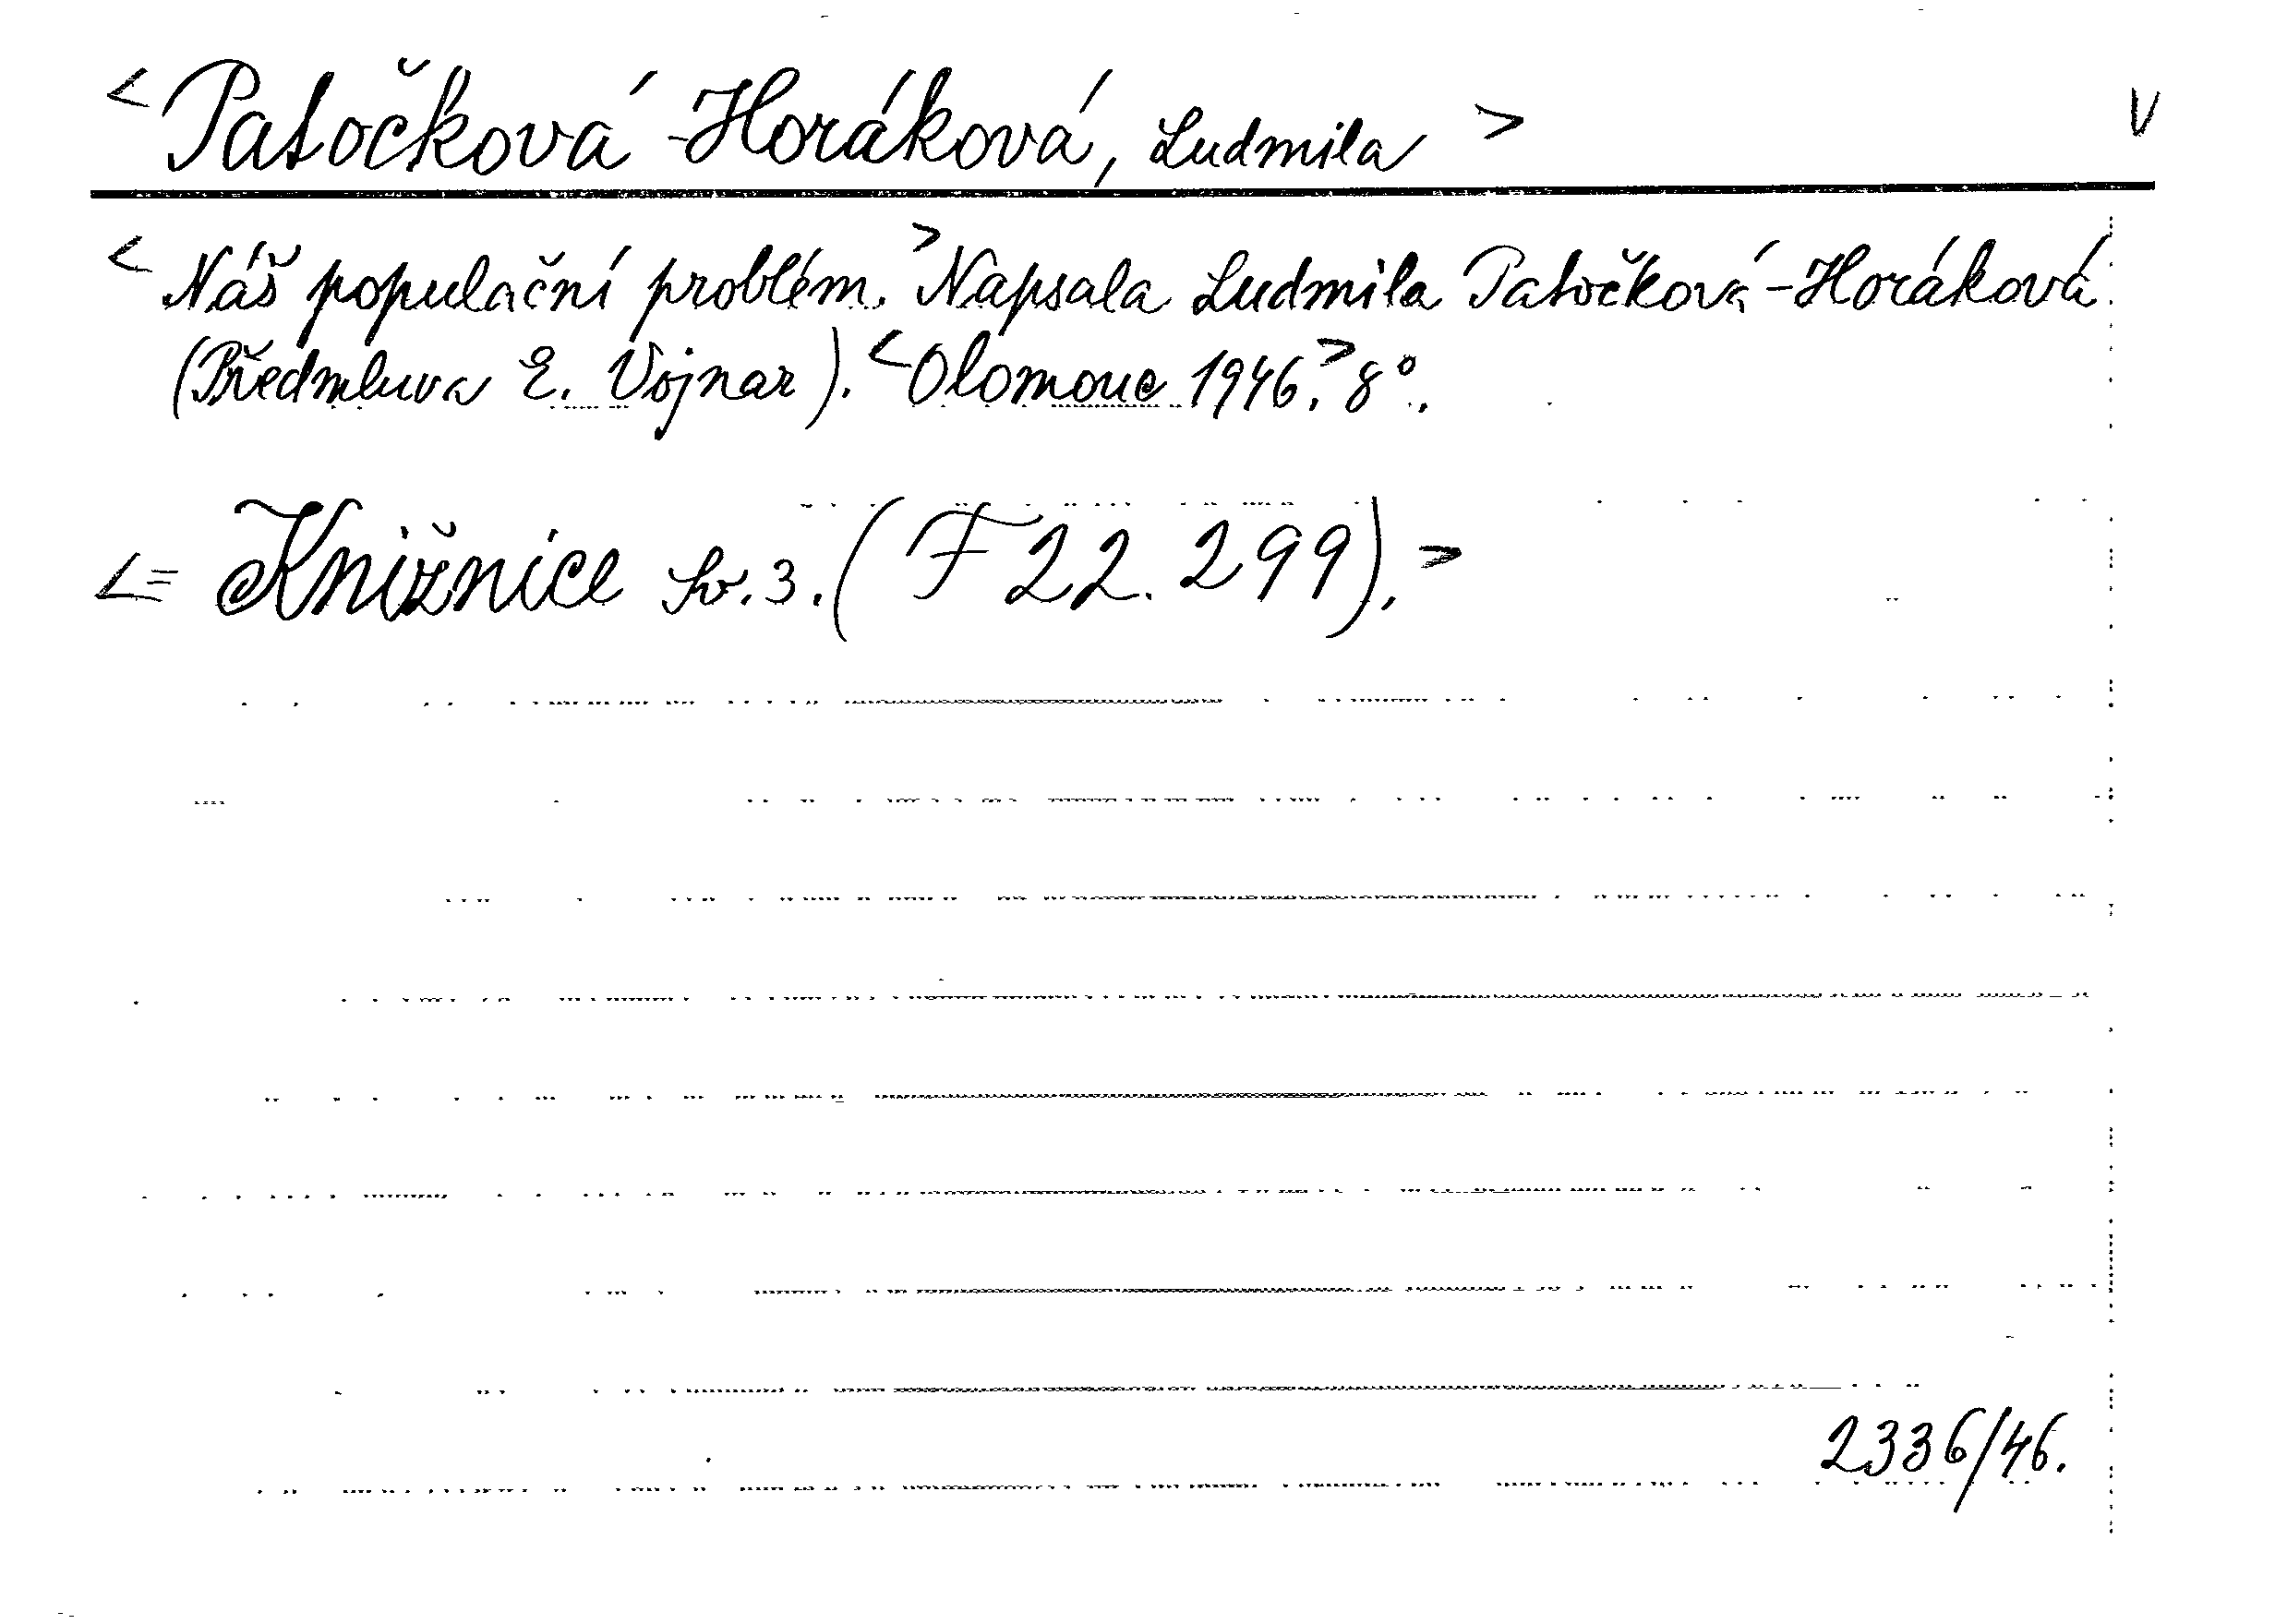 < Patočková-Horáková, Ludmila > V
< Náš populační problém. > Napsala Ludmila Patočková-Horáková
(Předmluva E. Vojnar). < Olomouc 1946. > 8°.
<= Knižnice Sv. 3. (F 22.299). >
2336/46.